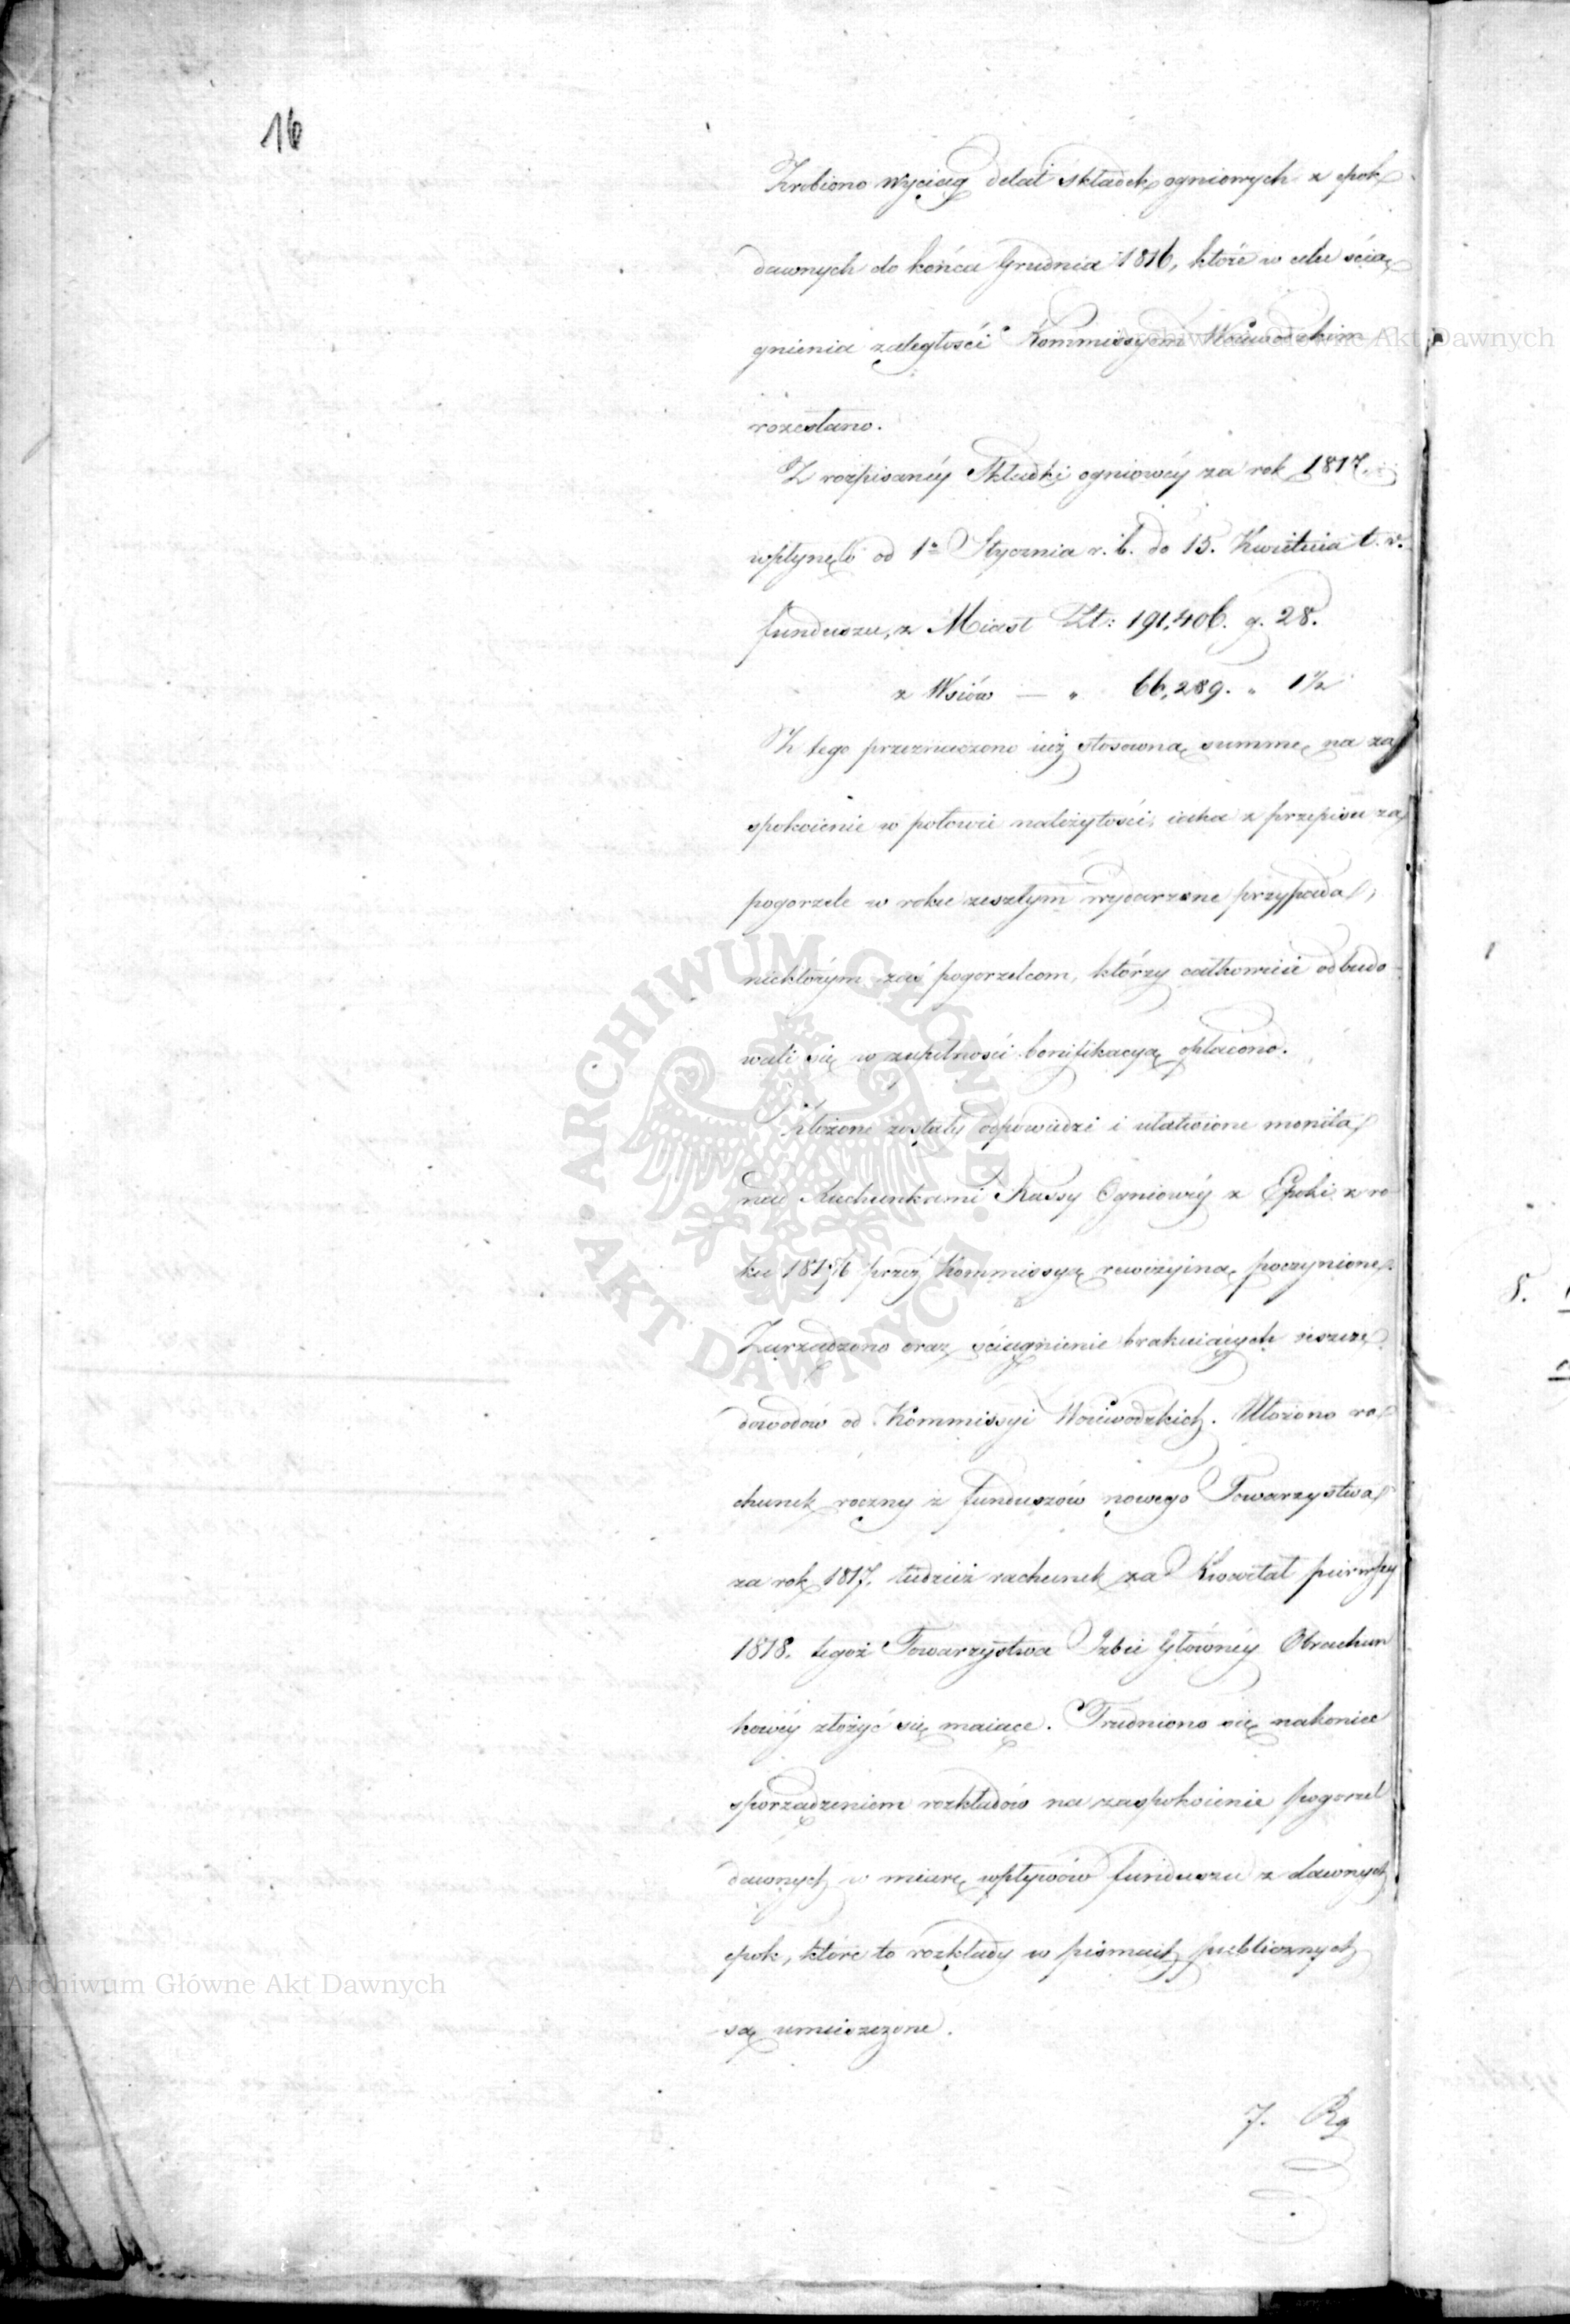 16
Zrobiono wyciąg delat składek ogniowych z epok
dawnych do końca Grudnia 1816, które w celu ścią-
gnienia zaległości Kommissyom Woiewodzkim
rozesłano.
Z rozpisanéy Składki ogniowéy za rok 1817.
wpłynęło od 1o Stycznia r. b. do 15. Kwietnia t. r.
funduszu, z Miast Zł: 191,406. g. 28.
z Wsiów — " 66,289. " 1½
Z tego przeznaczono iuż stosowną summę na za-
spokoienie w połowie należytości, iaka z przepisu za
pogorzele w roku zeszłym wydarzone przypada,
niektórym zaś pogorzelcom, którzy całkowicie odbudo-
wali się w zupełności bonifikacyą opłacono.
złożone zostały odpowiedzi i ułatwione monita
nad Rachunkami Kassy Ogniowéy z Epoki z ro-
ku 1815/6 przez Kommissyą rewizyiną poczynione.
Zarządzono oraz ściągnienie brakuiących ieszcze
dowodów od Kommissyi Woiewodzkich. Ułożono ra-
chunek roczny z funduszów nowego Towarzystwa
za rok 1817. tudzież rachunek za Kwartał pierwszy
1818. tegoż Towarzystwa Izbie Głównéy Obrachun
kowéy złożyć się maiące. Trudniono się nakoniec
sporządzeniem rozkładów na zaspokoienie pogorzel
dawnych w miarę wpływów funduszu z dawnych
epok, które to rozkłady w pismach publicznych
są umieszczone.
7. Rg
8.
Archiwum Główne Akt Dawnych
Archiwum Główne Akt Dawnych
ARCHIWUM GŁÓWNE AKT DAWNYCH